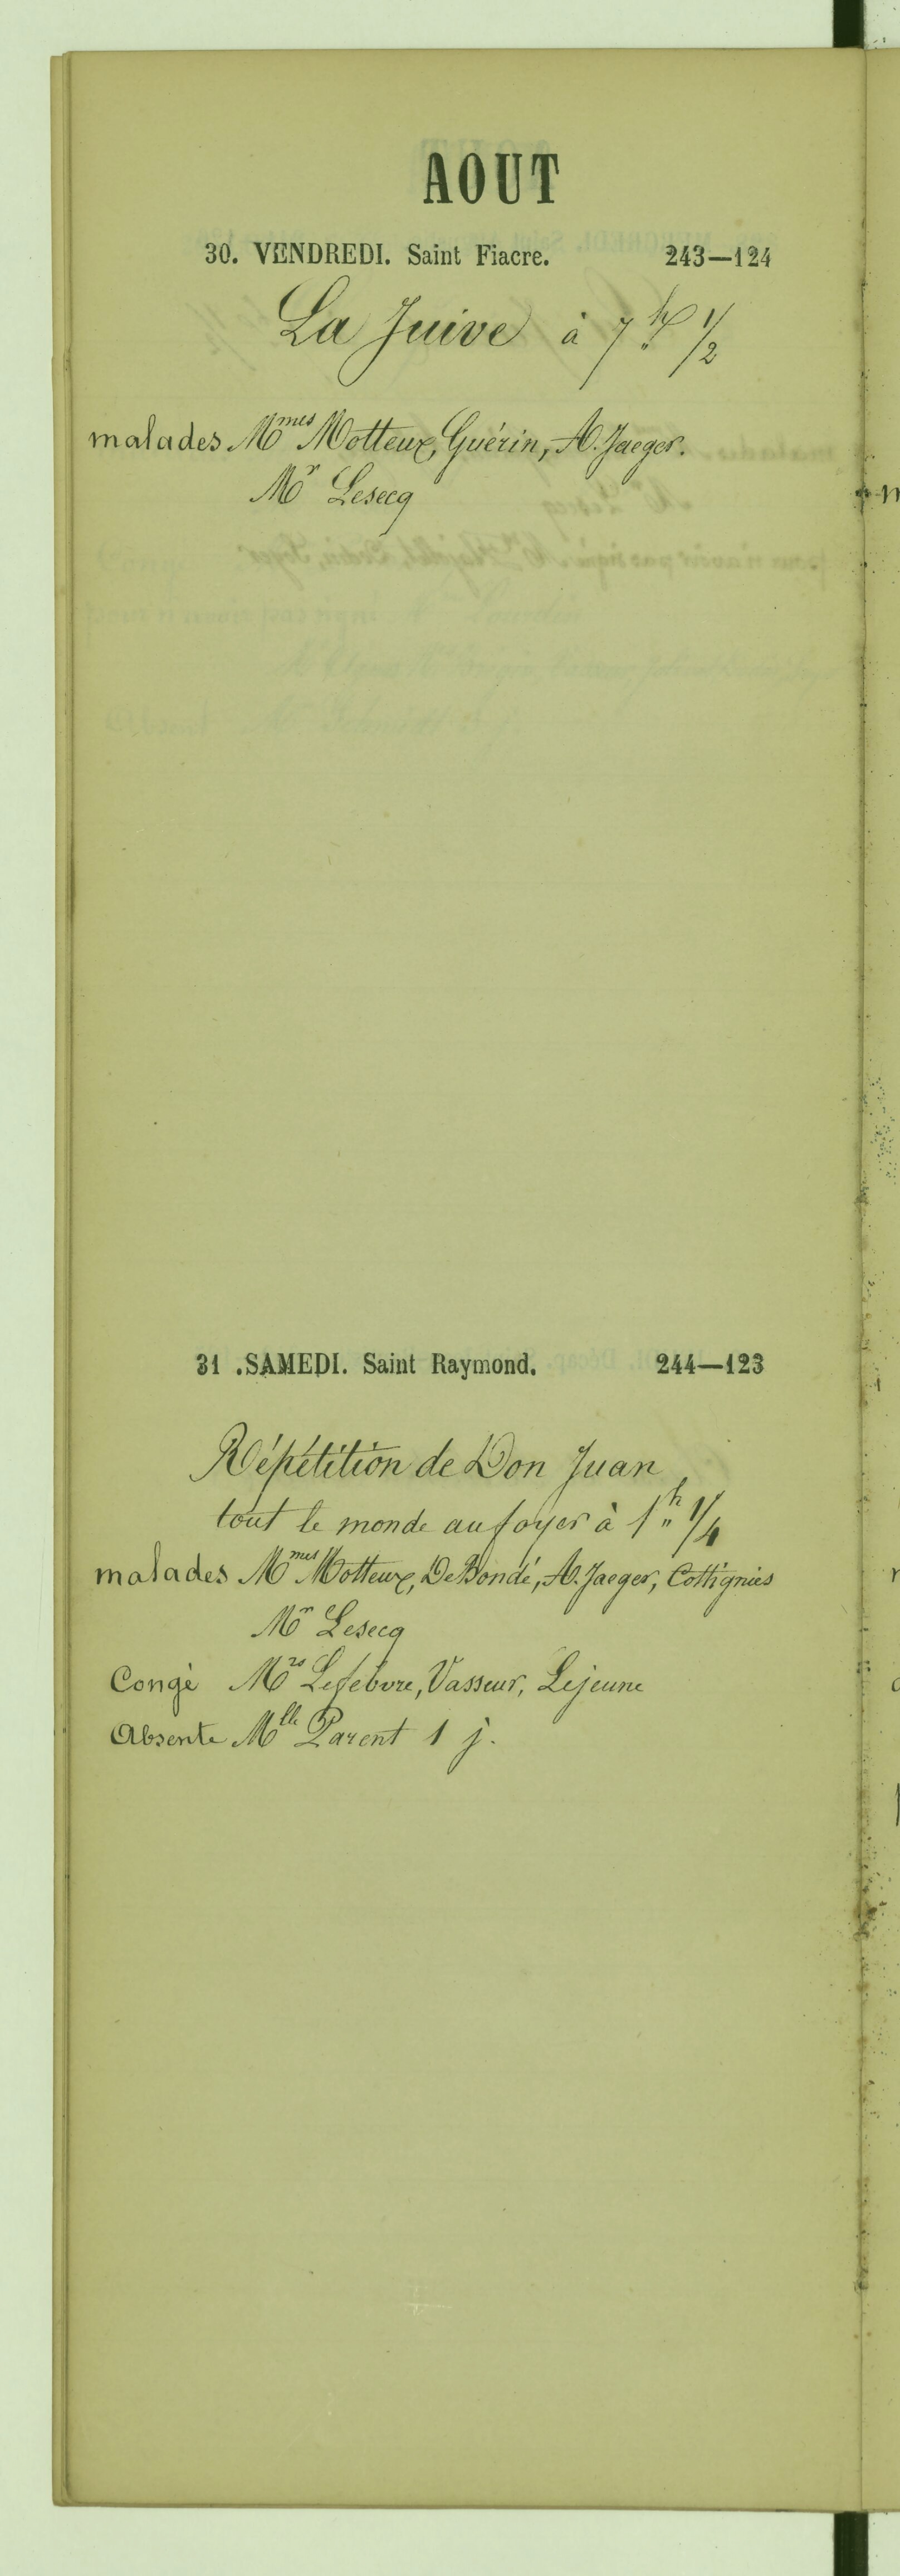 AOUT
30. VENDREDI. Saint Fiacre. 243—124
La Juive à 7h 1/2
malades Mmes Motteux, Guérin, A. Jaeger.
Mr Lesecq
31 .SAMEDI. Saint Raymond. 244—123
Répétition de Don Juan
tout le monde au foyer à 1h 1/4
malades Mmes Motteux, De Bondé, A. Jaeger, Cottignies
Mr Lesecq
Congé Mrs Lefebvre, Vasseur, Lejeune
Absente Mlle Parent 1 j.